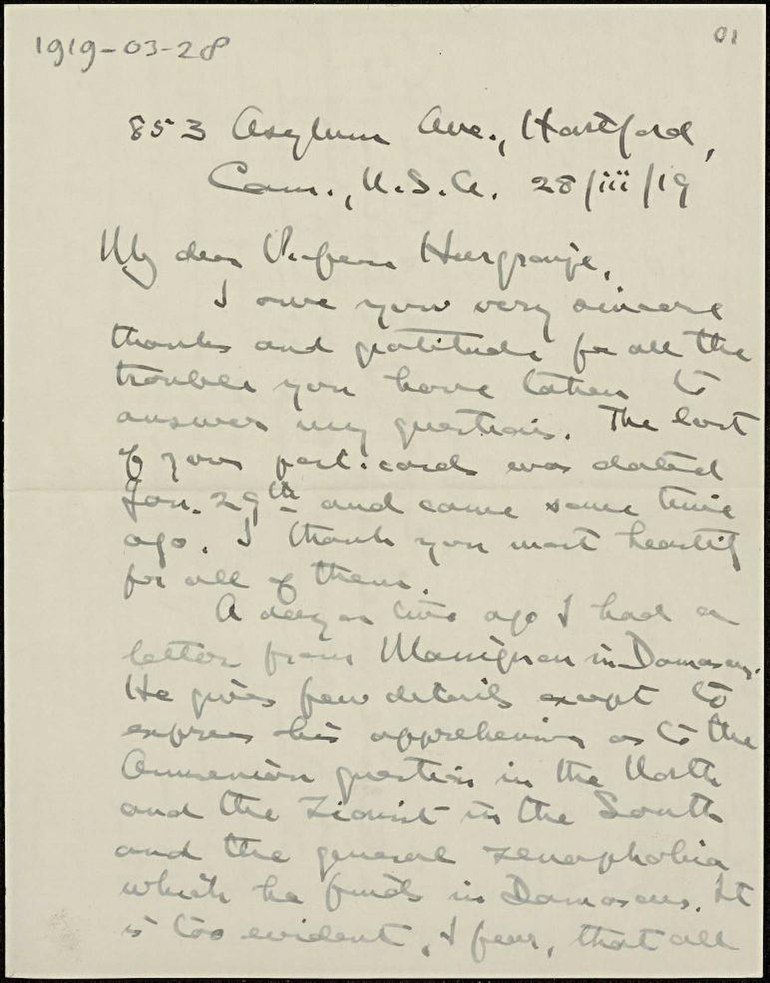 1919-03-28
01
853 Asylum Ave., Hartford,
Conn., U.S.A. 28/iii/19
My dear Professor Hurgronje,
I owe you very sincere
thanks and gratitude for all the
trouble you have taken to
answer my questions. The last
of your post-cards was dated
Jan. 29th and came some time
ago. I thank you most heartily
for all of them.
A day or two ago I had a
letter from Massignon in Damascus.
He gives few details except to
express his apprehensions as to the
Armenian question in the North
and the Zionist in the South
and the general xenophobia
which he finds in Damascus. It
is too evident, I fear, that all